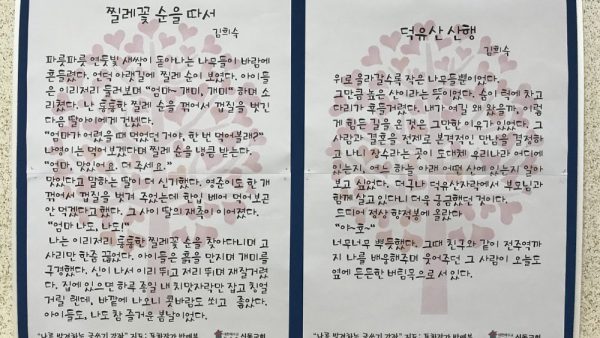 찔레꽃 순을 따서
김희숙
파릇파릇 연둣빛 새싹이 돋아나는 나무들이 바람에
흔들렸다. 언덕 아랫길에 찔레 순이 보였다. 아이들
은 이리저리 둘러보며 "엄마~ 개미, 개미" 하며 소
리쳤다. 난 통통한 찔레 순을 꺾어서 껍질을 벗긴
다음 딸아이에게 건넸다.
"엄마가 어렸을 때 먹었던 거야, 한 번 먹어볼래?"
나영이는 먹어보겠다며 찔레 순을 냉큼 받는다.
"엄마, 맛있어요. 더 주세요."
맛있다고 말하는 딸이 더 신기했다. 영준이도 한 개
꺾어서 껍질을 벗겨 주었는데 한입 베어 먹어보곤
안 먹겠다고 했다. 그 사이 딸의 재촉이 이어졌다.
"엄마 나도, 나도!"
나는 이리저리 통통한 찔레꽃 순을 찾아다니며 고
사리만 한줌 꺾었다. 아이들은 흙을 만지며 개미를
구경했다. 신이 나서 이리 뛰고 저리 뛰며 재잘거렸
다. 집에 있으면 하루 종일 내 치맛자락만 잡고 칭얼
거릴 텐데, 바깥에 나오니 콧바람도 쐬고 좋았다.
아이들도, 나도 참 즐거운 봄날이었다.
덕유산 산행
김희숙
위로 올라갈수록 작은 나무들뿐이었다.
그만큼 높은 산이라는 뜻이었다. 숨이 턱에 차고
다리가 후들거렸다. 내가 여길 왜 왔을까, 이렇
게 힘든 길을 온 것은 그만한 이유가 있었다. 그
사람과 결혼을 전제로 본격적인 만남을 결정하
고 나니 장수라는 곳이 도대체 우리나라 어디에
있는지, 어느 하늘 아래 어떤 산에 있는지 알아
보고 싶었다. 더구나 덕유산자락에서 부모님과
함께 살고 있다니 더욱 궁금했던 것이다.
드디어 정상 향적봉에 올랐다
"야~호~"
너무너무 뿌듯했다. 그때 친구와 같이 전주역까
지 나를 배웅해주며 웃어주던 그 사람이 오늘도
옆에 든든한 버팀목으로 서 있다.